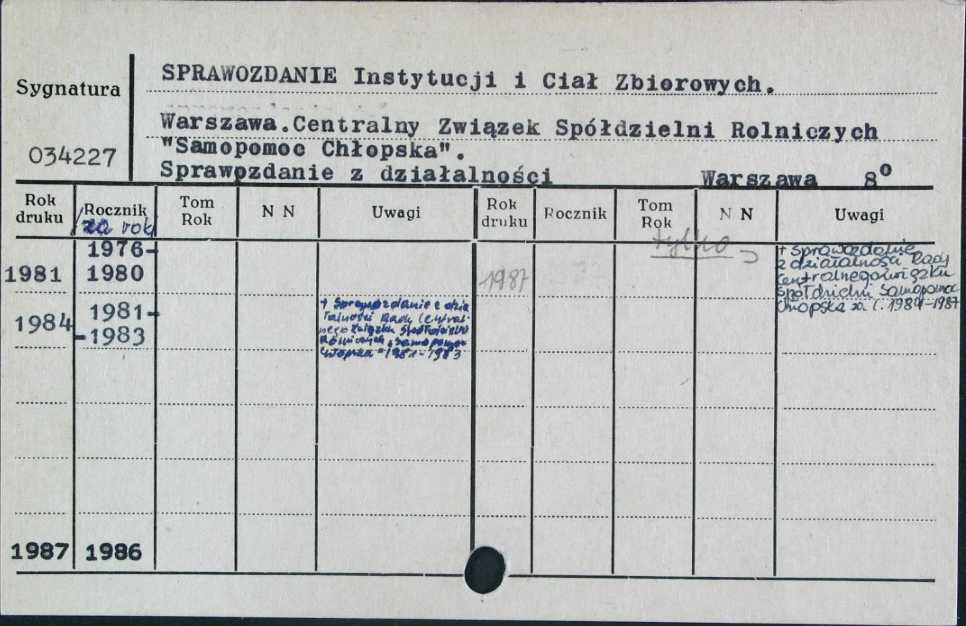 SPRAWOZDANIE Instytucji i Ciał Zbiorowych.
Sygnatura
Warszawa.Centralny Związek Spółdzielni Rolniczych
034227
"Samopomoc Chłopska".
Sprawozdanie z działalności Warszawa 8°
Rok druku
/Rocznik
za rok
Tom Rok
N N
Uwagi
Rok druku
Rocznik
Tom Rok
N N
Uwagi
1981
1976-
1980
1987
tylko
+ sprawozdanie
z działalności Rady
Centralnego Związku
Spółdzielni Samopomoc
Chłopska za l. 1984-1987
1984
1981-
-1983
+ Sprawozdanie z dzia
łalności Rady Central-
nego Związku Spółdzielni
Rolniczych "Samopomoc
Chłopska" 1981-1983
1987 1986